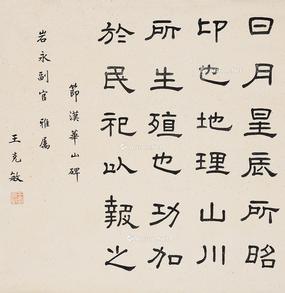 日月星辰所昭
印也地理山川
所生殖也功加
於民祀以報之
節漢華山碑
岩永副官 雅屬
王克敏